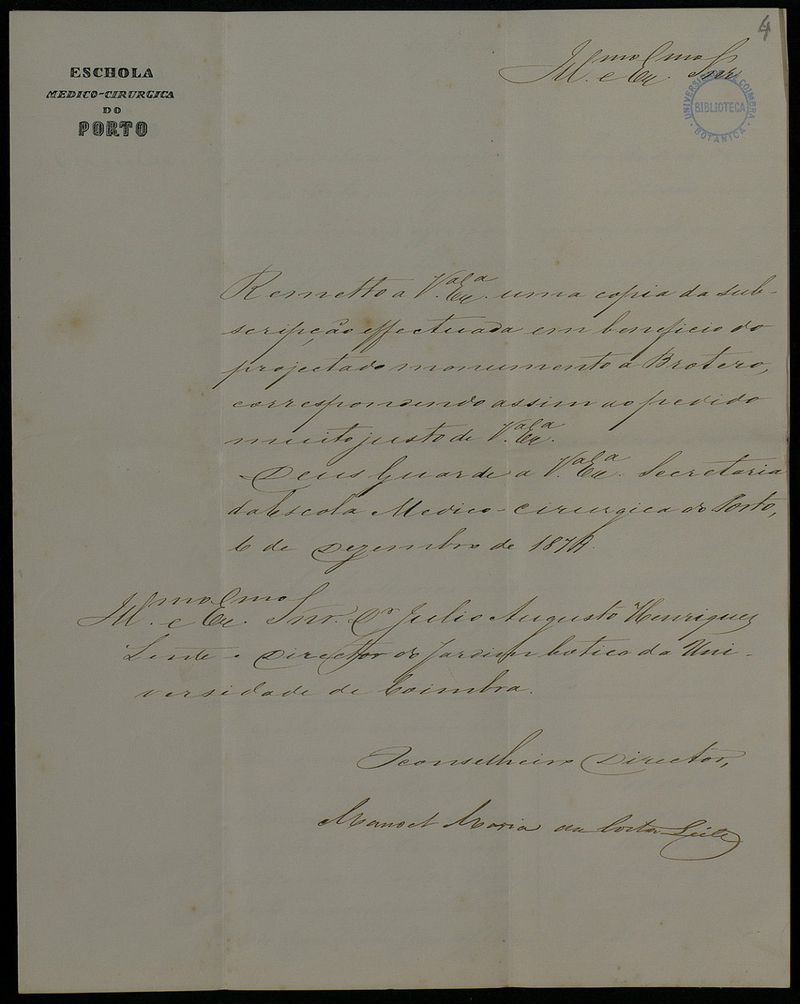 4
ESCHOLA
MEDICO-CIRURGICA
DO
PORTO
Ill.mo e Ex.mo Snr
UNIVERSIDADE DE COIMBRA
BIBLIOTECA
BOTANICA
Remetto a V.a Ex.a uma copia da sub-
scripção effectuada em beneficio do
projectado monumento a Brotero,
correspondendo assim ao pedido
muito justo de V.a Ex.a
Deus Guarde a V.a Ex.a Secretaria
da Escola Medico-cirurgica do Porto,
6 de Dezembro de 1878.
Ill.mo e Ex.mo Snr. Dr Julio Augusto Henriques
Lente e Director do Jardim botico da Uni-
versidade de Coimbra.
O conselheiro Director,
Manoel Maria da Costa Leite